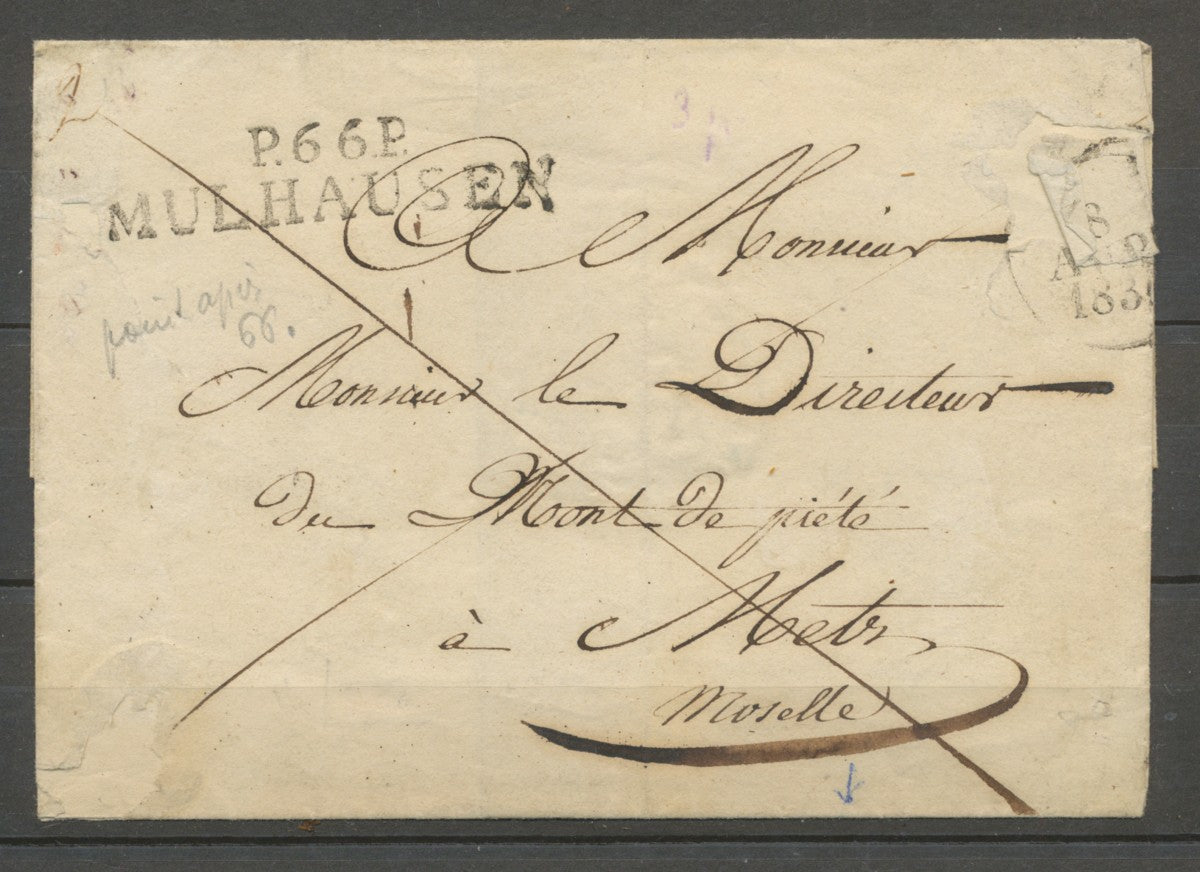 P.66.P.
MULHAUSEN
A Monsieur
8
183
point après
66.
Monsieur le Directeur
du Mont de piété
à Metz
Moselle